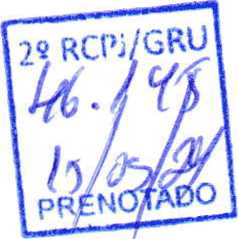 2º RCPJ/GRU
46.145
15/05/24
PRENOTADO